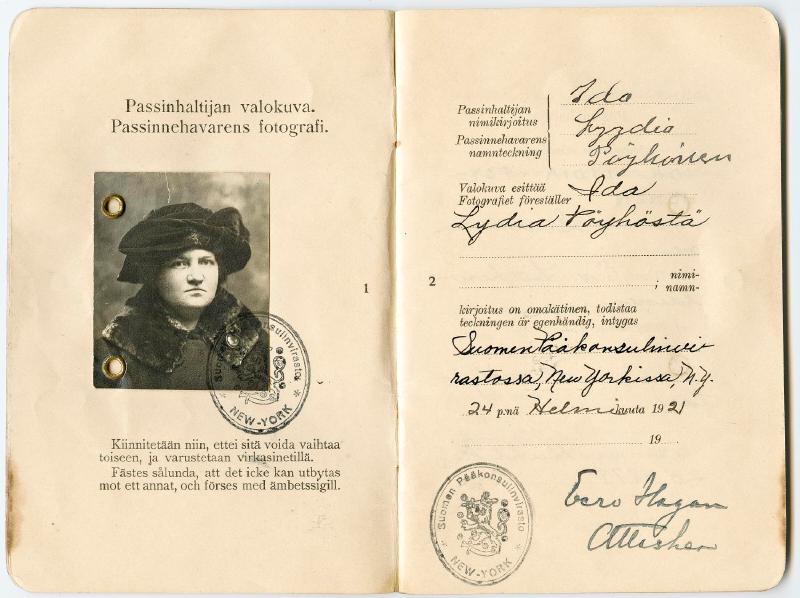 Passinhaltijan valokuva.
Passinnehavarens fotografi.
Suomen Pääkonsulinvirasto
* NEW-YORK *
1
Kiinnitetään niin, ettei sitä voida vaihtaa
toiseen, ja varustetaan virkasinetillä.
Fästes sålunda, att det icke kan utbytas
mot ett annat, och förses med ämbetssigill.
Passinhaltijan
nimikirjoitus
Passinnehavarens
namnteckning
Ida
Lyydia
Pöyhönen
Valokuva esittää
Fotografiet föreställer
Ida
Lydia Pöyhöstä
2
; nimi-
namn-
kirjoitus on omakätinen, todistaa
teckningen är egenhändig, intygas
Suomen Pääkonsulinvi-
rastossa, New Yorkissa, N.Y.
24 p:nä Helmikuuta 1921
19
Suomen Pääkonsulinvirasto
* NEW-YORK *
Eero